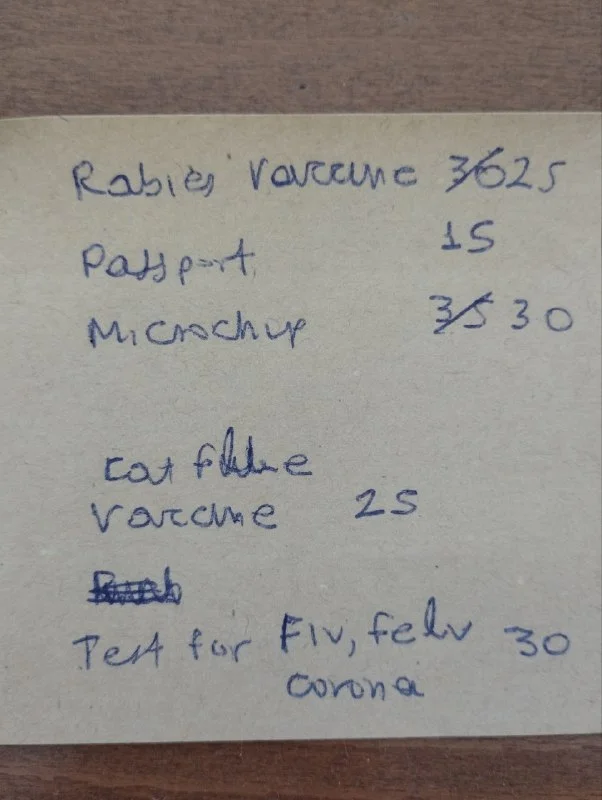 Rabies vaccine 36 25
Passport 15
Microchip 35 30
Cat
vaccine 25
Test for Fiv, felv 30
corona